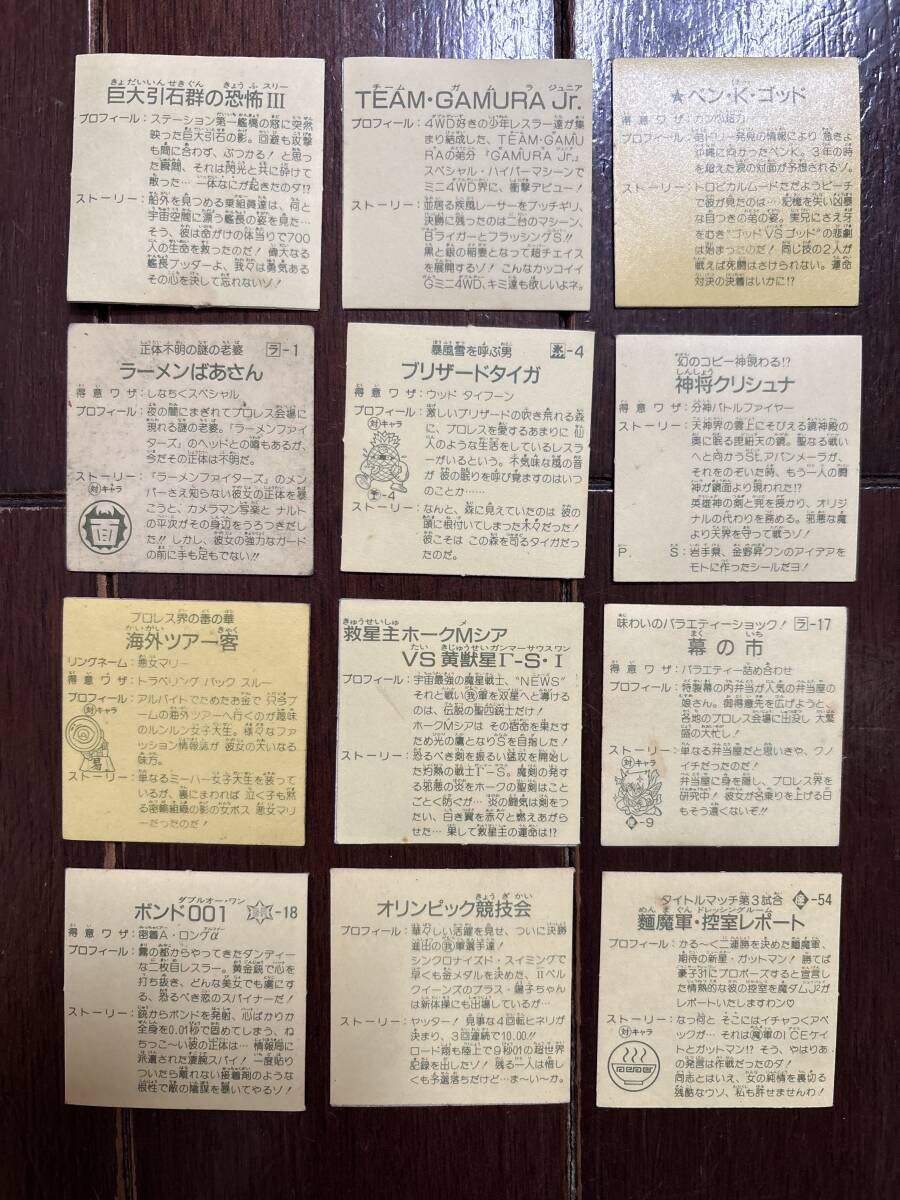 巨大引石群の恐怖III
プロフィール：ステーション第一艦橋の窓に突然
映った巨大引石の影。回避も攻撃
も間に合わず、ぶつかる！と思っ
た瞬間、それは閃光と共に砕けて
散った…一体なにが起きたのダ!?
ストーリー：船外を見つめる乗組員達は、何と
宇宙空間に漂う艦長の姿を見た…
そう、彼は命がけの体当りで700
人の生命を救ったのだ！偉大なる
艦長ブッダーよ、我々は勇気ある
その心を決して忘れないゾ！
TEAM・GAMURA Jr.
プロフィール：4WD好きの少年レスラー達が集
まり結成した、TEAM・GAMU
RAの弟分『GAMURA Jr.』
スペシャル・ハイパーマシーンで
ミニ4WD界に、衝撃デビュー！
ストーリー：並居る疾風レーサーをブッチギリ、
決勝に残ったのは二台のマシーン、
BライガーとフラッシングS!!
黒と銀の稲妻となって超チェイス
を展開するゾ！こんなカッコイイ
Gミニ4WD、キミ達も欲しいよネ。
★ベン・K・ゴッド
得意ワザ：
プロフィール：弟トリー発見の情報により 急きょ
沖縄に向かったベンK。3年の時
を超えた涙の対面が予想されるゾ。
ストーリー：トロピカルムードただようビーチ
で彼が見たのは…記憶を失い凶暴
な目つきの弟の姿。実兄にさえ牙
をむき"ゴッドVSゴッド"の悲劇
は始まったのだ！同じ技の2人が
戦えば死闘はさけられない。運命
対決の決着はいかに!?
正体不明の謎の老婆 ラ-1
ラーメンばあさん
得意ワザ：しなちくスペシャル
プロフィール：夜の闇にまぎれてプロレス会場に
現れる謎の老婆。「ラーメンファイ
ターズ」のヘッドとの噂もあるが、
今だその正体は不明だ。
ストーリー：「ラーメンファイターズ」のメン
対キャラ
バーさえ知らない彼女の正体を暴
こうと、カメラマン写楽と ナルト
の平次がその身辺をうろつきだし
た!! しかし、彼女の強力なガード
の前に手も足もでない!!
暴風雪を呼ぶ男 -4
ブリザードタイガ
得意ワザ：ウッド タイフーン
プロフィール：激しいブリザードの吹き荒れる森
対キャラ
に、プロレスを愛するあまりに 仙
人のような生活をしているレスラ
ーがいるという。不気味な風の音
が 彼の眠りを呼び覚ますのはいつ
のことか……
-4
ストーリー：なんと、森に見えていたのは 彼の
頭に根付いてしまった木々だった！
彼こそは この森を司るタイガだっ
たのだ。
幻のコピー神現わる!?
神将クリシュナ
得意ワザ：分神バトルファイヤー
ストーリー：天神界の雲上にそびえる鏡神殿の
奥に眠る毘紐天の鏡。聖なる戦い
へと向かうSt.アバンメーラが、
それをのぞいた時、もう一人の闘
神が鏡面より現われた!?
英雄神の剣と兜を授かり、オリジ
ナルの代わりを務める。邪悪な魔
より天界を守って戦うゾ！
P．S：岩手県、金野昇クンのアイデアを
モトに作ったシールだヨ！
プロレス界の毒の華
海外ツアー客
リングネーム：悪女マリー
得意ワザ：トラベリング バック スルー
プロフィール：アルバイトでためたお金で 只今ブ
対キャラ
ームの海外ツアーへ行くのが趣味
のルンルン女子大生。様々なファ
ッション情報誌が 彼女の大いなる
味方。
易
ストーリー：単なるミーハー女子大生を装って
いるが、裏にまわれば 泣く子も黙
る密輸組織の影の女ボス 悪女マリ
ーだったのだ！
救星主ホークMシア
VS 黄獣星Γ-S・I
プロフィール：宇宙最強の魔星戦士、"NEWS"
それと戦い我軍を双星へと導ける
のは、伝説の聖四銃士だけ！
ホークMシアは その宿命を果たす
ため光の鷹となりSを目指した！
ストーリー：恐るべき剣を振るい猛攻を開始し
た灼熱の戦士Γ-S。魔剣の発す
る邪悪の炎をホークの聖剣はこと
ごとく防ぐが… 炎の闘気は剣をつ
たい、白き翼を赤々と燃えあがら
せた… 果して救星主の運命は!?
味わいのバラエティーショック！ ラ-17
幕の市
得意ワザ：バラエティー詰め合わせ
プロフィール：特製幕の内弁当が人気の弁当屋の
娘さん。御得意先を広げようと、
各地のプロレス会場に出没し 大繁
盛の大忙し！
ストーリー：単なる弁当屋だと思いきや、ワノ
対キャラ
イチだったのだ！
弁当屋に身を隠し、プロレス界を
研究中！ 彼女が名乗りを上げる日
もそう遠くないぞ!!
-9
ボンド001 -18
得意ワザ：密着A・ロングα
プロフィール：霧の都からやってきたダンディー
な二枚目レスラー。黄金銃で心を
打ち抜き、どんな美女でも虜にす
る、恐るべき恋のスパイナーだ！
ストーリー：銃からボンドを発射、心ばかりか
全身を0.01秒で固めてしまう、ね
ちっこ～い彼の正体は… 情報局に
派遣された凄腕スパイ！ 一度貼り
ついたら離れない 接着剤のような
根性で敵の陰謀を暴いてやるゾ！
オリンピック競技会
プロフィール：華々しい活躍を見せ、ついに決勝
進出の我軍選手達！
シンクロナイズド・スイミングで
早くも金メダルを決めた、IIベル
クイーンズのプラス・陽子ちゃん
は新体操にも出場しているが…
ストーリー：ヤッター！ 見事な4回転ヒネリが
決まり、3回連続で10.00!!
ロード翔も陸上で9秒01の超世界
記録を出したゾ！ 残る一人は惜し
くも予選落ちだけど…ま～い～か。
タイトルマッチ第3試合 -54
麺魔軍・控室レポート
プロフィール：かる～く二連勝を決めた麺魔軍、
期待の新星・ガットマン！ 勝てば
豪子31にプロポーズすると宣言し
た情熱的な彼の控室を魔ダムJRが
レポートいたしますわン♡
ストーリー：なっ何と そこにはイチャつくアベ
対キャラ
ックが… それは魔軍のICEケイ
トとガットマン!? そう、やはりあ
の発言は作戦だったのダ！
同志とはいえ、女の純情を裏切る
残酷なウソ、私も許せませんわ！